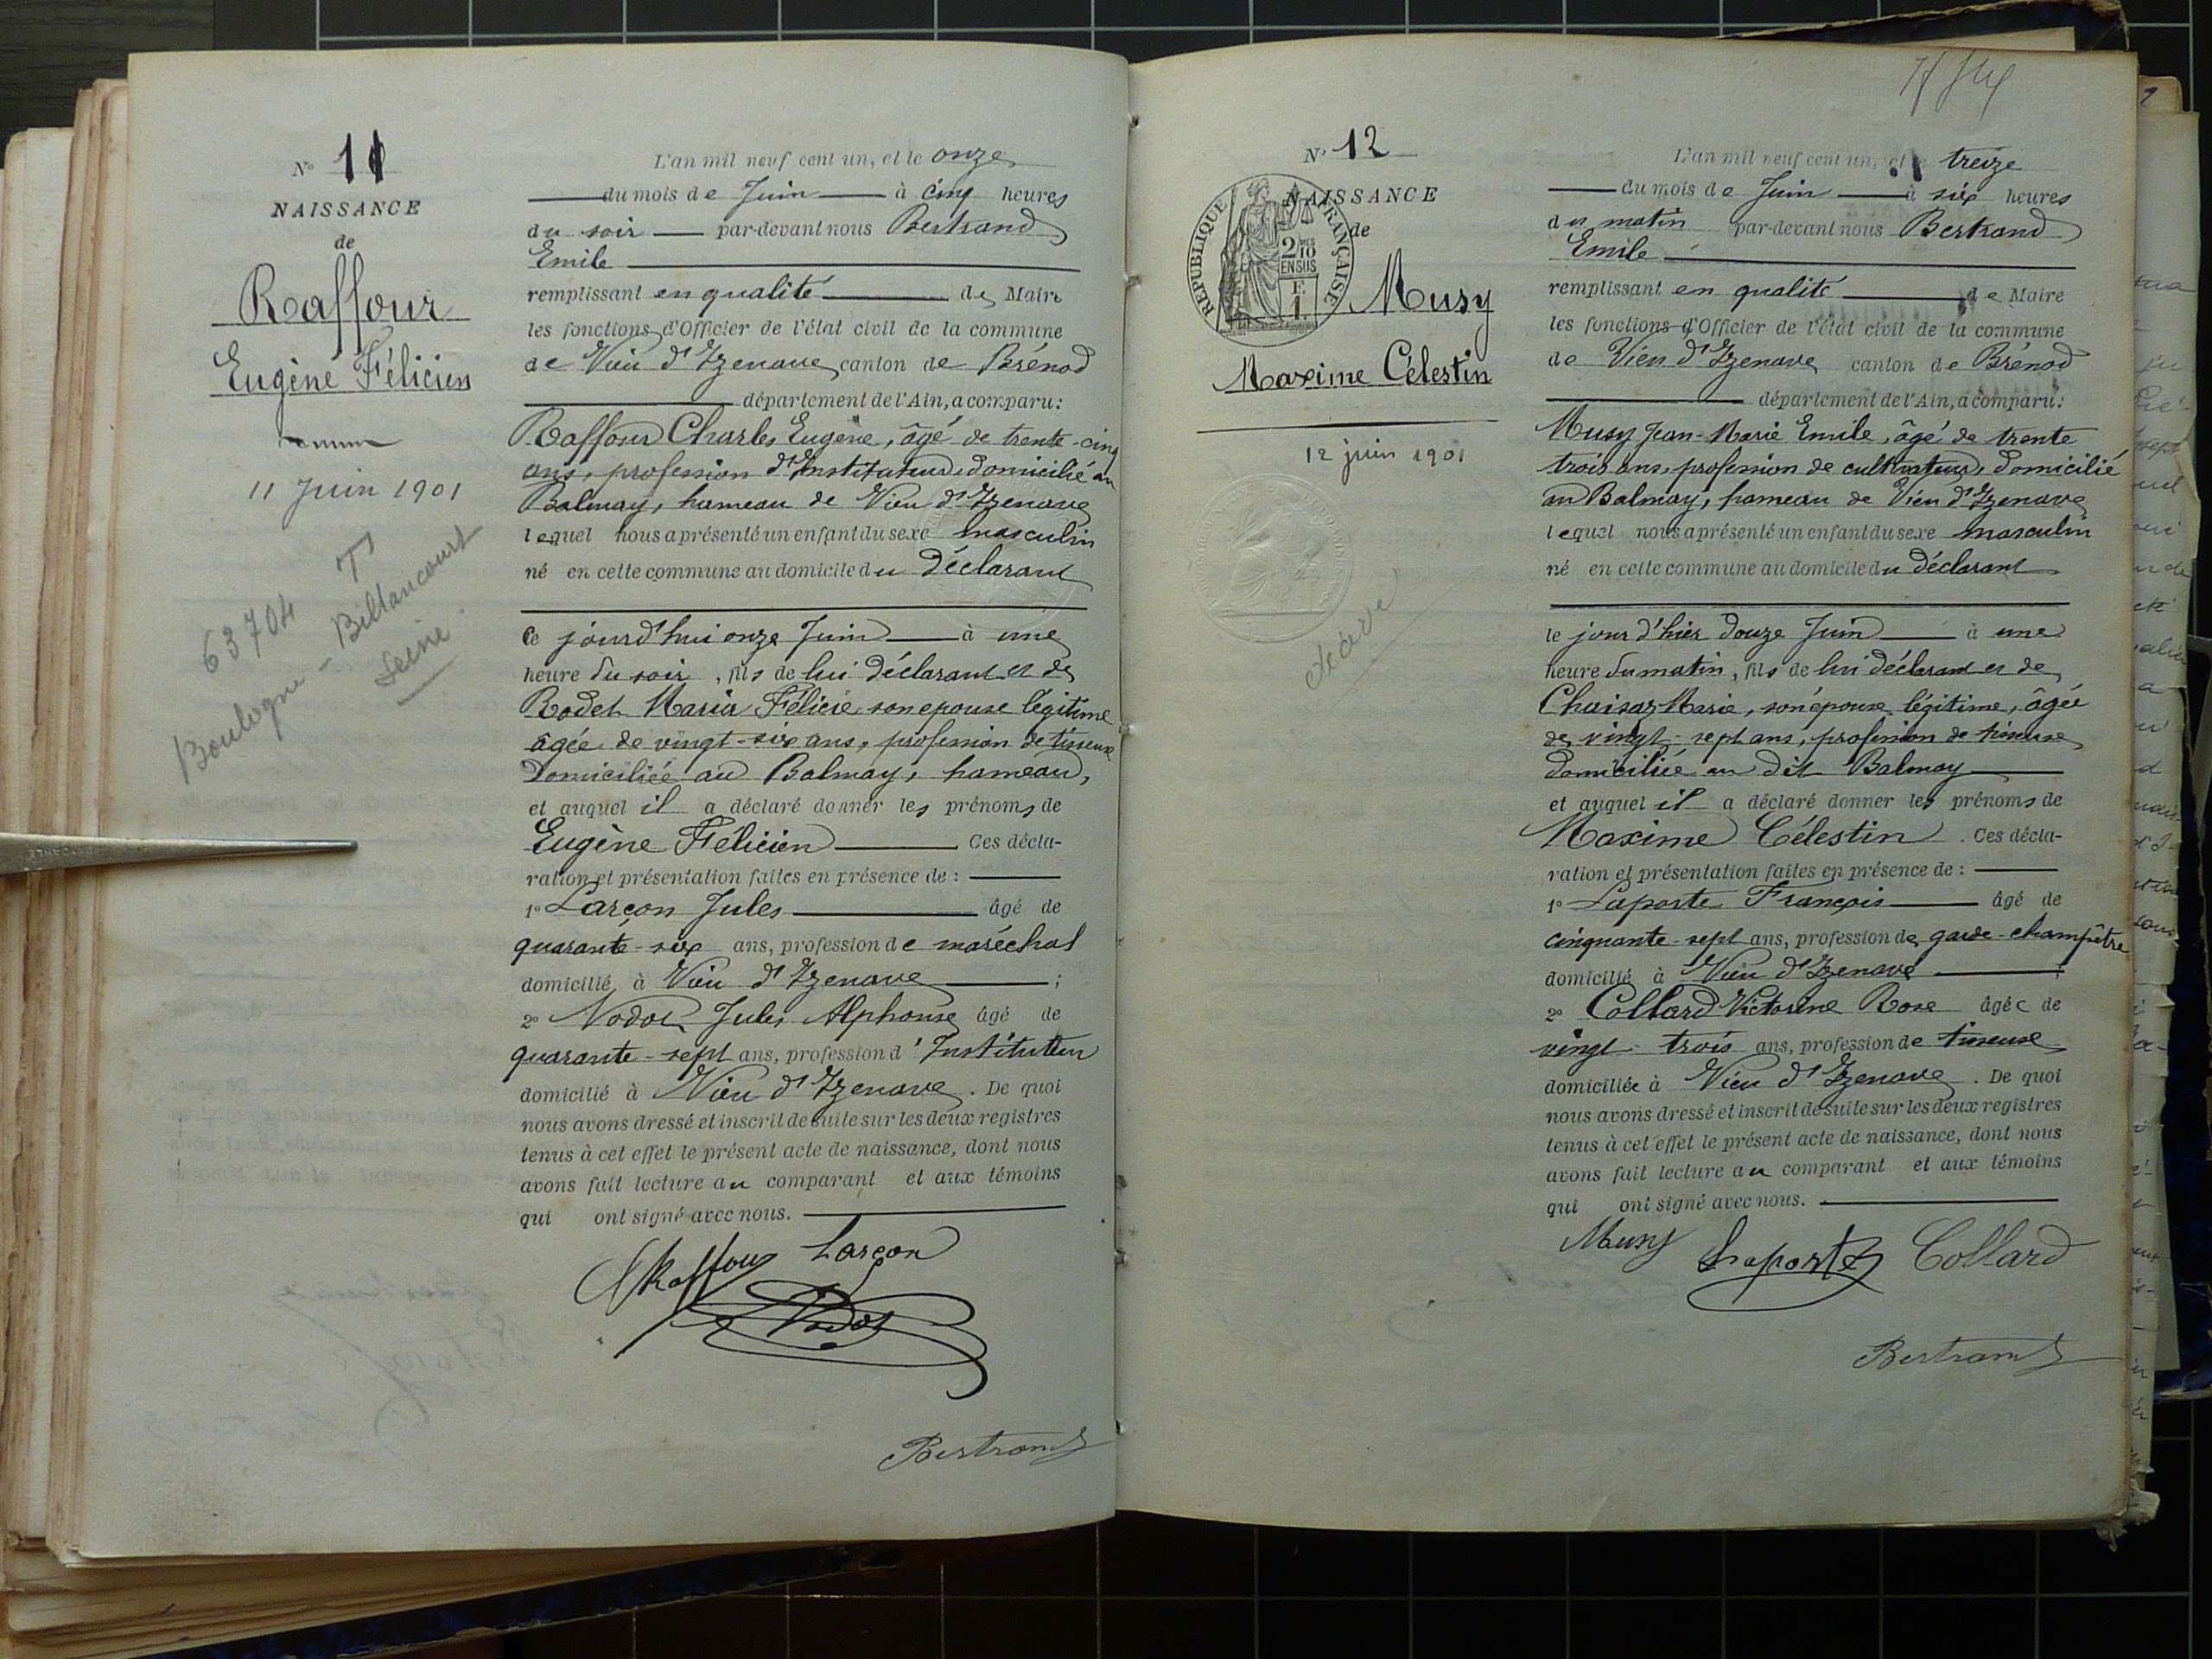 N° 11
NAISSANCE
de
Raffour
Eugène Félicien
11 Juin 1901
63704 T
Boulogne - Billancourt
Seine
L'an mil neuf cent un, et le onze
du mois de Juin à cinq heures
du soir par-devant nous Bertrand
Emile
remplissant en qualité de Maire
les fonctions d'Officier de l'état civil de la commune
de Vieu d'Izenave canton de Brénod
département de l'Ain, a comparu:
Raffour Charles Eugène, âgé de trente-cinq
ans, profession d'Instituteur, domicilié au
Balmay, hameau de Vieu d'Izenave
lequel nous a présenté un enfant du sexe masculin
né en cette commune au domicile du Déclarant
Ce jourd'hui onze Juin à une
heure du soir, fils de lui Déclarant et de
Rodet Maria Félicie son epouse légitime
âgée de vingt-six ans, profession de tisseuse
Domiciliée au Balmay, hameau,
et auquel il a déclaré donner les prénoms de
Eugène Félicien Ces décla-
ration et présentation faites en présence de :
1° Larçon Jules âgé de
quarante-six ans, profession de maréchal
domicilié à Vieu d'Izenave ;
2° Nodot Jules Alphonse âgé de
quarante-sept ans, profession d'Instituteur
domicilié à Vieu d'Izenave. De quoi
nous avons dressé et inscrit de suite sur les deux registres
tenus à cet effet le présent acte de naissance, dont nous
avons fait lecture au comparant et aux témoins
qui ont signé avec nous.
Raffour Larçon
Nodot
Bertrand
N° 12
NAISSANCE
de
REPUBLIQUE FRANÇAISE
2/10 MES
EN SUS
1 F.
Musy
Maxime Célestin
12 juin 1901
L'an mil neuf cent un, et le treize
du mois de Juin à six heures
du matin par-devant nous Bertrand
Emile
remplissant en qualité de Maire
les fonctions d'Officier de l'état civil de la commune
de Vieu d'Izenave canton de Brénod
département de l'Ain, a comparu:
Musy Jean-Marie Emile, âgé de trente
trois ans, profession de cultivateur, domicilié
au Balmay, hameau de Vieu d'Izenave
lequel nous a présenté un enfant du sexe masculin
né en cette commune au domicile du Déclarant
le jour d'hier Douze Juin à une
heure du matin, fils de lui déclarant et de
Chaisaz Marie, son épouse légitime, âgée
de vingt-sept ans, profession de tisseuse
domiciliée au dit Balmay
et auquel il a déclaré donner les prénoms de
Maxime Célestin. Ces décla-
ration et présentation faites en présence de :
1° Laporte François âgé de
cinquante-sept ans, profession de garde-champêtre
domicilié à Vieu d'Izenave ;
2° Collard Victorine Rose âgée de
vingt-trois ans, profession de tisseuse
domiciliée à Vieu d'Izenave. De quoi
nous avons dressé et inscrit de suite sur les deux registres
tenus à cet effet le présent acte de naissance, dont nous
avons fait lecture au comparant et aux témoins
qui ont signé avec nous.
Musy Laporte Collard
Bertrand